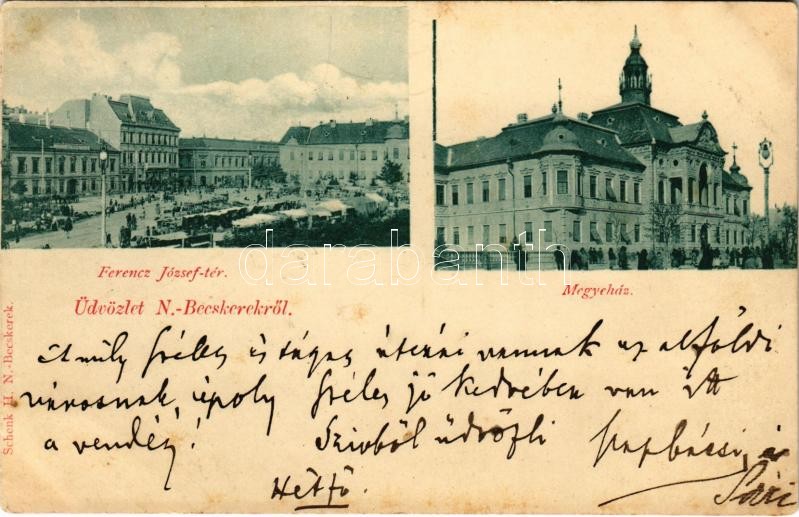 Ferencz József-tér.
Megyeház.
Üdvözlet N.-Becskerekről.
Schenk H. N.-Becskerek.
darabanth
A mily széles és tágas utczái vannak az alföldi
városnak, époly széles jó kedvében van itt
a vendég! Szivből üdvözli
Hétfő.
Sári